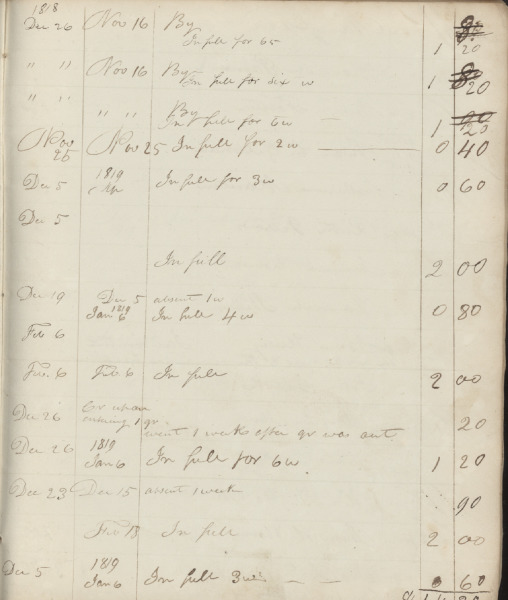 1818
Dec 26 Nov 16 By
In full for 6w 1 20
" " Nov 16 By In full for six w 1 20
" " " " By
In full for 6w — 1 20
Nov 25 Nov 25 In full for 2w — 0 40
Dec 5 1819 In full for 3w 0 60
Dec 5
In full 2 00
Dec 19 Dec 5 absent 1w
1819 Jan 6 In full 4w 0 80
Feb 6
Feb. 6 Feb 6 In full 2 00
Dec 26 Cr upon
entering 1 qr.
went 1 week after qr was out 20
Dec 26 1819
Jan 6 In full for 6w 1 20
Dec 23 Dec 15 absent 1 week 90
Feb 13 In full 2 00
Dec 5 1819
Jan 6 In full 3w — — 0 60